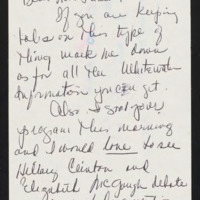 If you are keeping
tabs on this type of
thing mark me down
as for all the Whitewater
information you can get.
Also I saw your
program this morning
and I would love to see
Hillary Clinton and
Elizabeth McCaughey debate